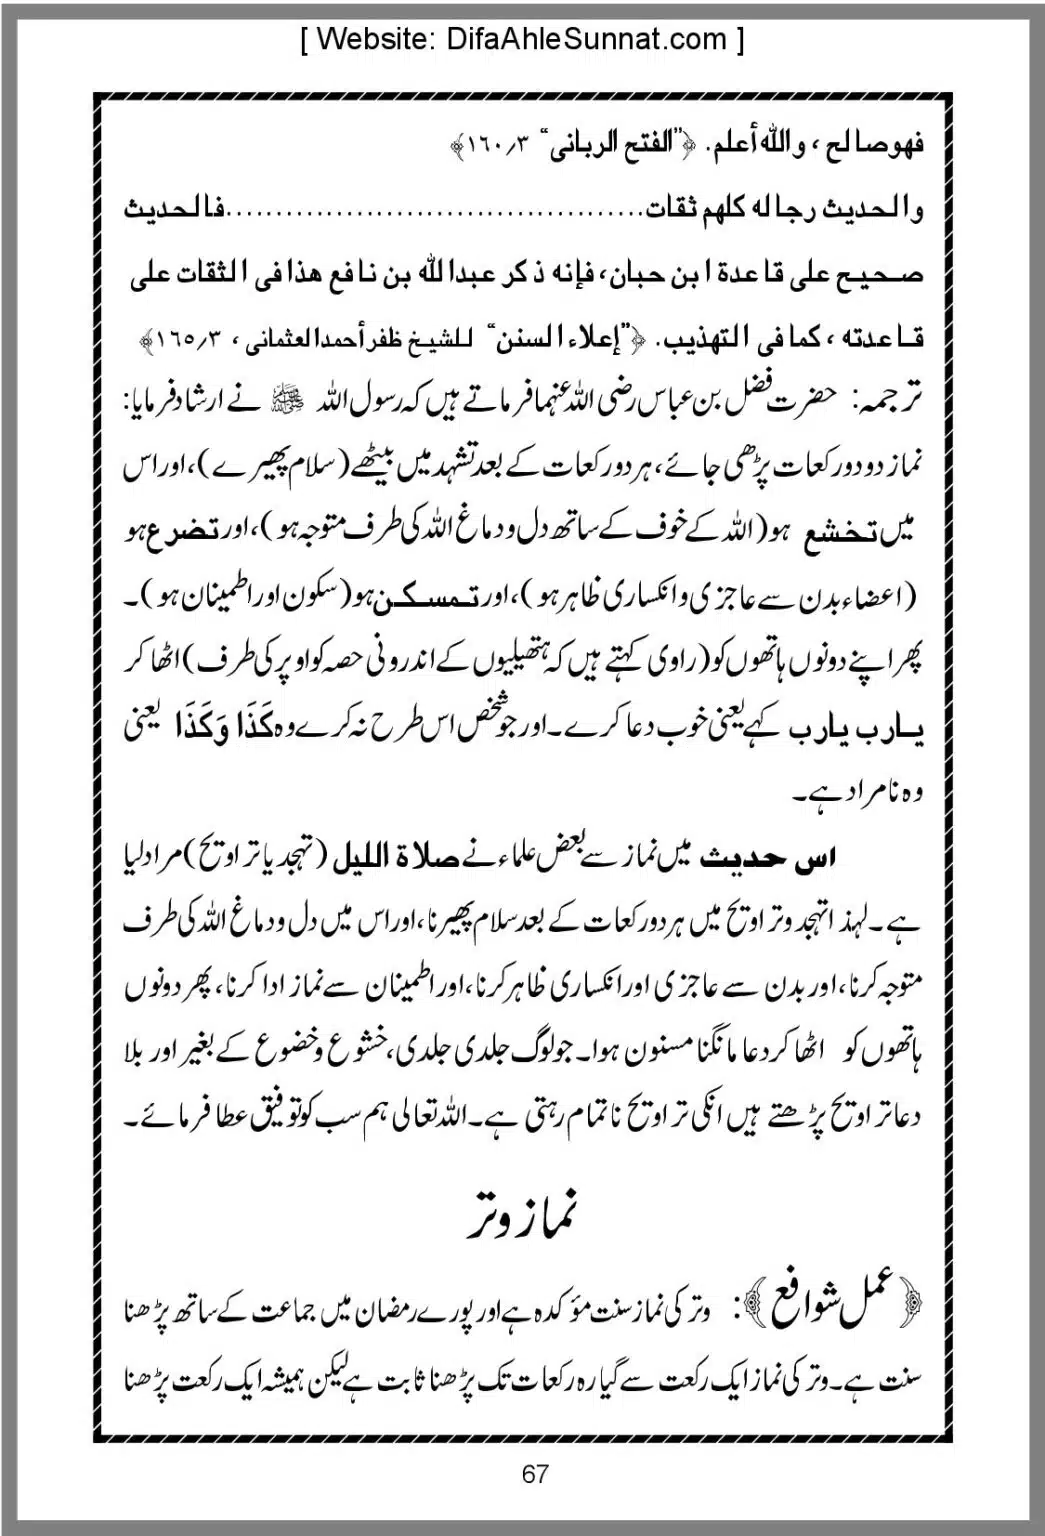 [ Website: DifaAhleSunnat.com ]
فهو صالح ، والله أعلم. ﴿”الفتح الربانی“ ۳؍۱۶۰﴾
والحديث رجاله كلهم ثقات..........................................فالحديث
صحيح على قاعدة ابن حبان، فإنه ذكر عبدالله بن نافع هذا فى الثقات على
قاعدته ، كما فى التهذيب. ﴿”إعلاء السنن“ للشيخ ظفر أحمد العثمانی ، ۳؍۱۶۵﴾
ترجمہ: حضرت فضل بن عباس رضی اللہ عنہما فرماتے ہیں کہ رسول اللہ ﷺ نے ارشاد فرمایا:
نماز دو دو رکعات پڑھی جائے، ہر دو رکعات کے بعد تشہد میں بیٹھے (سلام پھیرے)، اور اس
میں تخشع ہو (اللہ کے خوف کے ساتھ دل و دماغ اللہ کی طرف متوجہ ہو)، اور تضرع ہو
(اعضاء بدن سے عاجزی و انکساری ظاہر ہو)، اور تمسکن ہو (سکون اور اطمینان ہو)۔
پھر اپنے دونوں ہاتھوں کو (راوی کہتے ہیں کہ ہتھیلیوں کے اندرونی حصہ کو اوپر کی طرف) اٹھا کر
یارب یارب کہے یعنی خوب دعا کرے۔ اور جو شخص اس طرح نہ کرے وہ كَذَا وَكَذَا یعنی
وہ نامراد ہے۔
اس حدیث میں نماز سے بعض علماء نے صلاة الليل (تہجد یا تراویح) مراد لیا
ہے۔ لہذا تہجد و تراویح میں ہر دو رکعات کے بعد سلام پھیرنا، اور اس میں دل و دماغ اللہ کی طرف
متوجہ کرنا، اور بدن سے عاجزی اور انکساری ظاہر کرنا، اور اطمینان سے نماز ادا کرنا، پھر دونوں
ہاتھوں کو اٹھا کر دعا مانگنا مسنون ہوا۔ جو لوگ جلدی جلدی، خشوع و خضوع کے بغیر اور بلا
دعا تراویح پڑھتے ہیں انکی تراویح ناتمام رہتی ہے۔ اللہ تعالی ہم سب کو توفیق عطا فرمائے۔
نماز وتر
﴿عمل شوافع﴾: وتر کی نماز سنت مؤکدہ ہے اور پورے رمضان میں جماعت کے ساتھ پڑھنا
سنت ہے۔ وتر کی نماز ایک رکعت سے گیارہ رکعات تک پڑھنا ثابت ہے لیکن ہمیشہ ایک رکعت پڑھنا
67